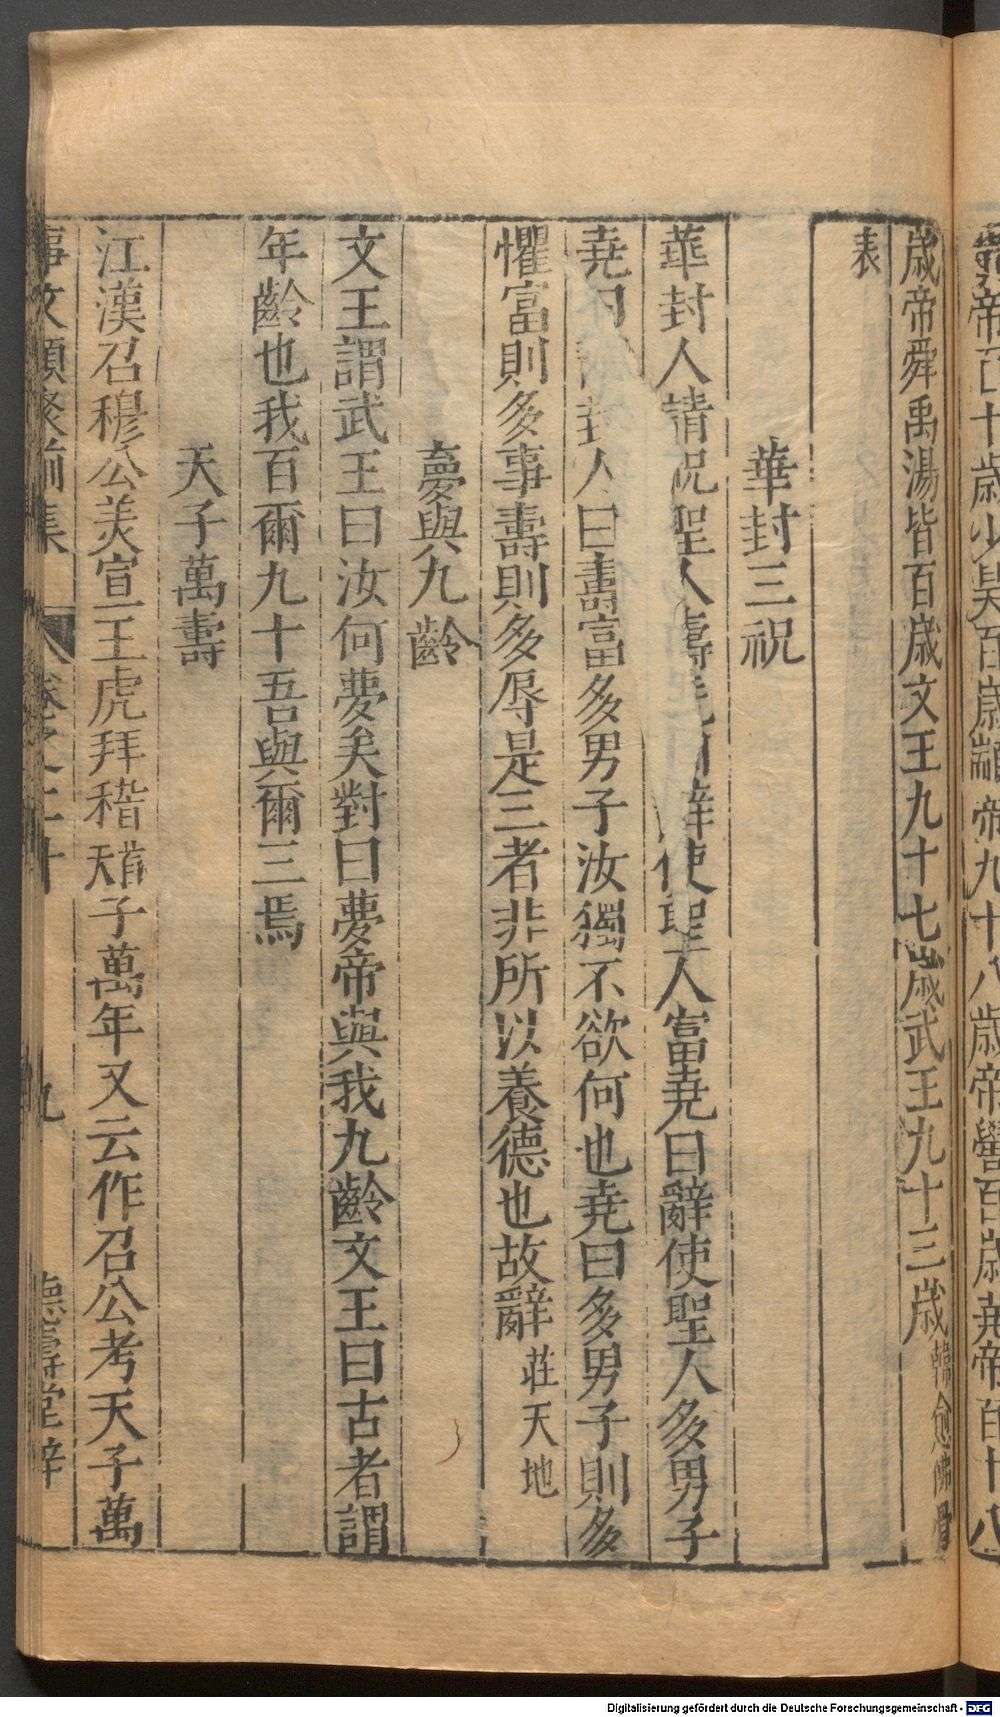 帝百十歲少昊百歲顓帝九十八歲帝嚳百歲堯帝百十八
歲帝舜禹湯皆百歲文王九十七歲武王九十三歲韓愈佛骨
表
華封三祝
華封人請祝聖人壽堯曰辭使聖人富堯曰辭使聖人多男子
堯曰 封人曰壽富多男子汝獨不欲何也堯曰多男子則多
懼富則多事壽則多辱是三者非所以養德也故辭莊天地
夢與九齡
文王謂武王曰汝何夢矣對曰夢帝與我九齡文王曰古者謂
年齡也我百爾九十吾與爾三焉
天子萬壽
江漢召穆公美宣王虎拜稽首天子萬年又云作召公考天子萬
事文類聚前集 卷之二十 九 德壽堂梓
Digitalisierung gefördert durch die Deutsche Forschungsgemeinschaft - DFG